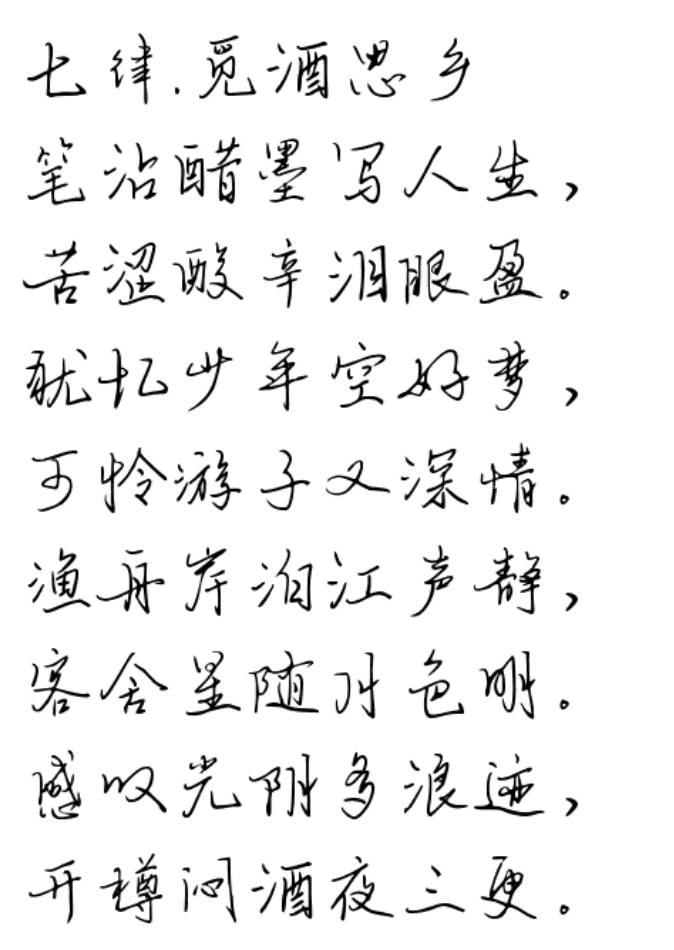 七律.觅酒思乡
笔沾醋墨写人生，
苦涩酸辛泪眼盈。
犹忆少年空好梦，
可怜游子又深情。
渔舟岸泊江声静，
客舍星随月色明。
感叹光阴多浪迹，
开樽闷酒夜三更。